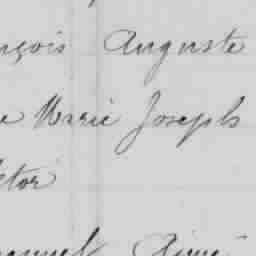 nçois Auguste
e Marie Joseph
ctor
anuel Aimé